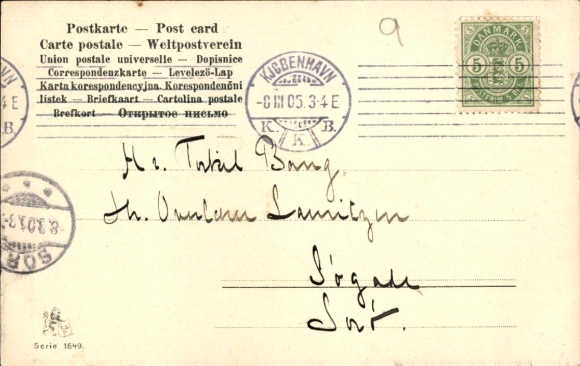 Postkarte — Post card
Carte postale — Weltpostverein
Union postale universelle — Dopisnice
Correspondenzkarte — Levelező-Lap
Karta korespondencyjna. Korespondenčni
listek — Briefkaart — Cartolina postale
Brefkort — Открытое письмо
9
DANMARK
5 5
KJØBENHAVN
-8 III 05. 3-4 E
K. K B.
Hr. Torkil Bang.
Lauritzen
Søgade
Sorø.
SOR
8.3.05.3-
4 E
B.
Serie 1649.